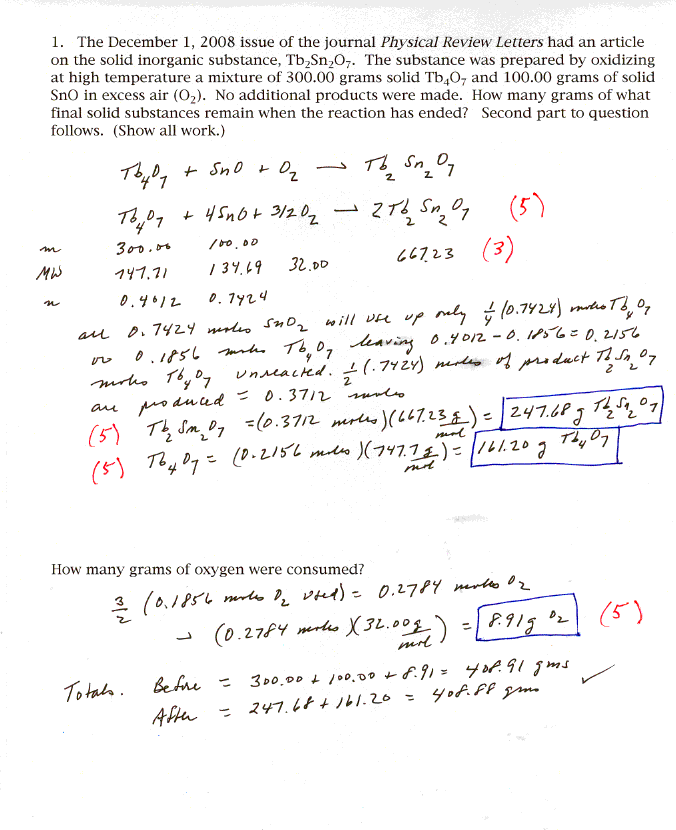 1. The December 1, 2008 issue of the journal Physical Review Letters had an article
on the solid inorganic substance, Tb₂Sn₂O₇. The substance was prepared by oxidizing
at high temperature a mixture of 300.00 grams solid Tb₄O₇ and 100.00 grams of solid
SnO in excess air (O₂). No additional products were made. How many grams of what
final solid substances remain when the reaction has ended? Second part to question
follows. (Show all work.)
Tb₄O₇ + SnO + O₂ → Tb₂Sn₂O₇
Tb₄O₇ + 4SnO + 3/2O₂ → 2Tb₂Sn₂O₇ (5)
m 300.00 100.00
MW 747.71 134.69 32.00 667.23 (3)
n 0.4012 0.7424
all 0.7424 moles SnO₂ will use up only 1/4 (0.7424) moles Tb₄O₇
or 0.1856 moles Tb₄O₇ leaving 0.4012 - 0.1856 = 0.2156
moles Tb₄O₇ unreacted. 1/2 (.7424) moles of product Tb₂Sn₂O₇
are produced = 0.3712 moles
(5) Tb₂Sn₂O₇ = (0.3712 moles)(667.23 g/mol) = 247.68 g Tb₂Sn₂O₇
(5) Tb₄O₇ = (0.2156 moles)(747.7 g/mol) = 161.20 g Tb₄O₇
How many grams of oxygen were consumed?
3/2 (0.1856 moles O₂ used) = 0.2784 moles O₂
→ (0.2784 moles)(32.00 g/mol) = 8.91 g O₂ (5)
Totals. Before = 300.00 + 100.00 + 8.91 = 408.91 gms ✓
After = 247.68 + 161.20 = 408.88 gms